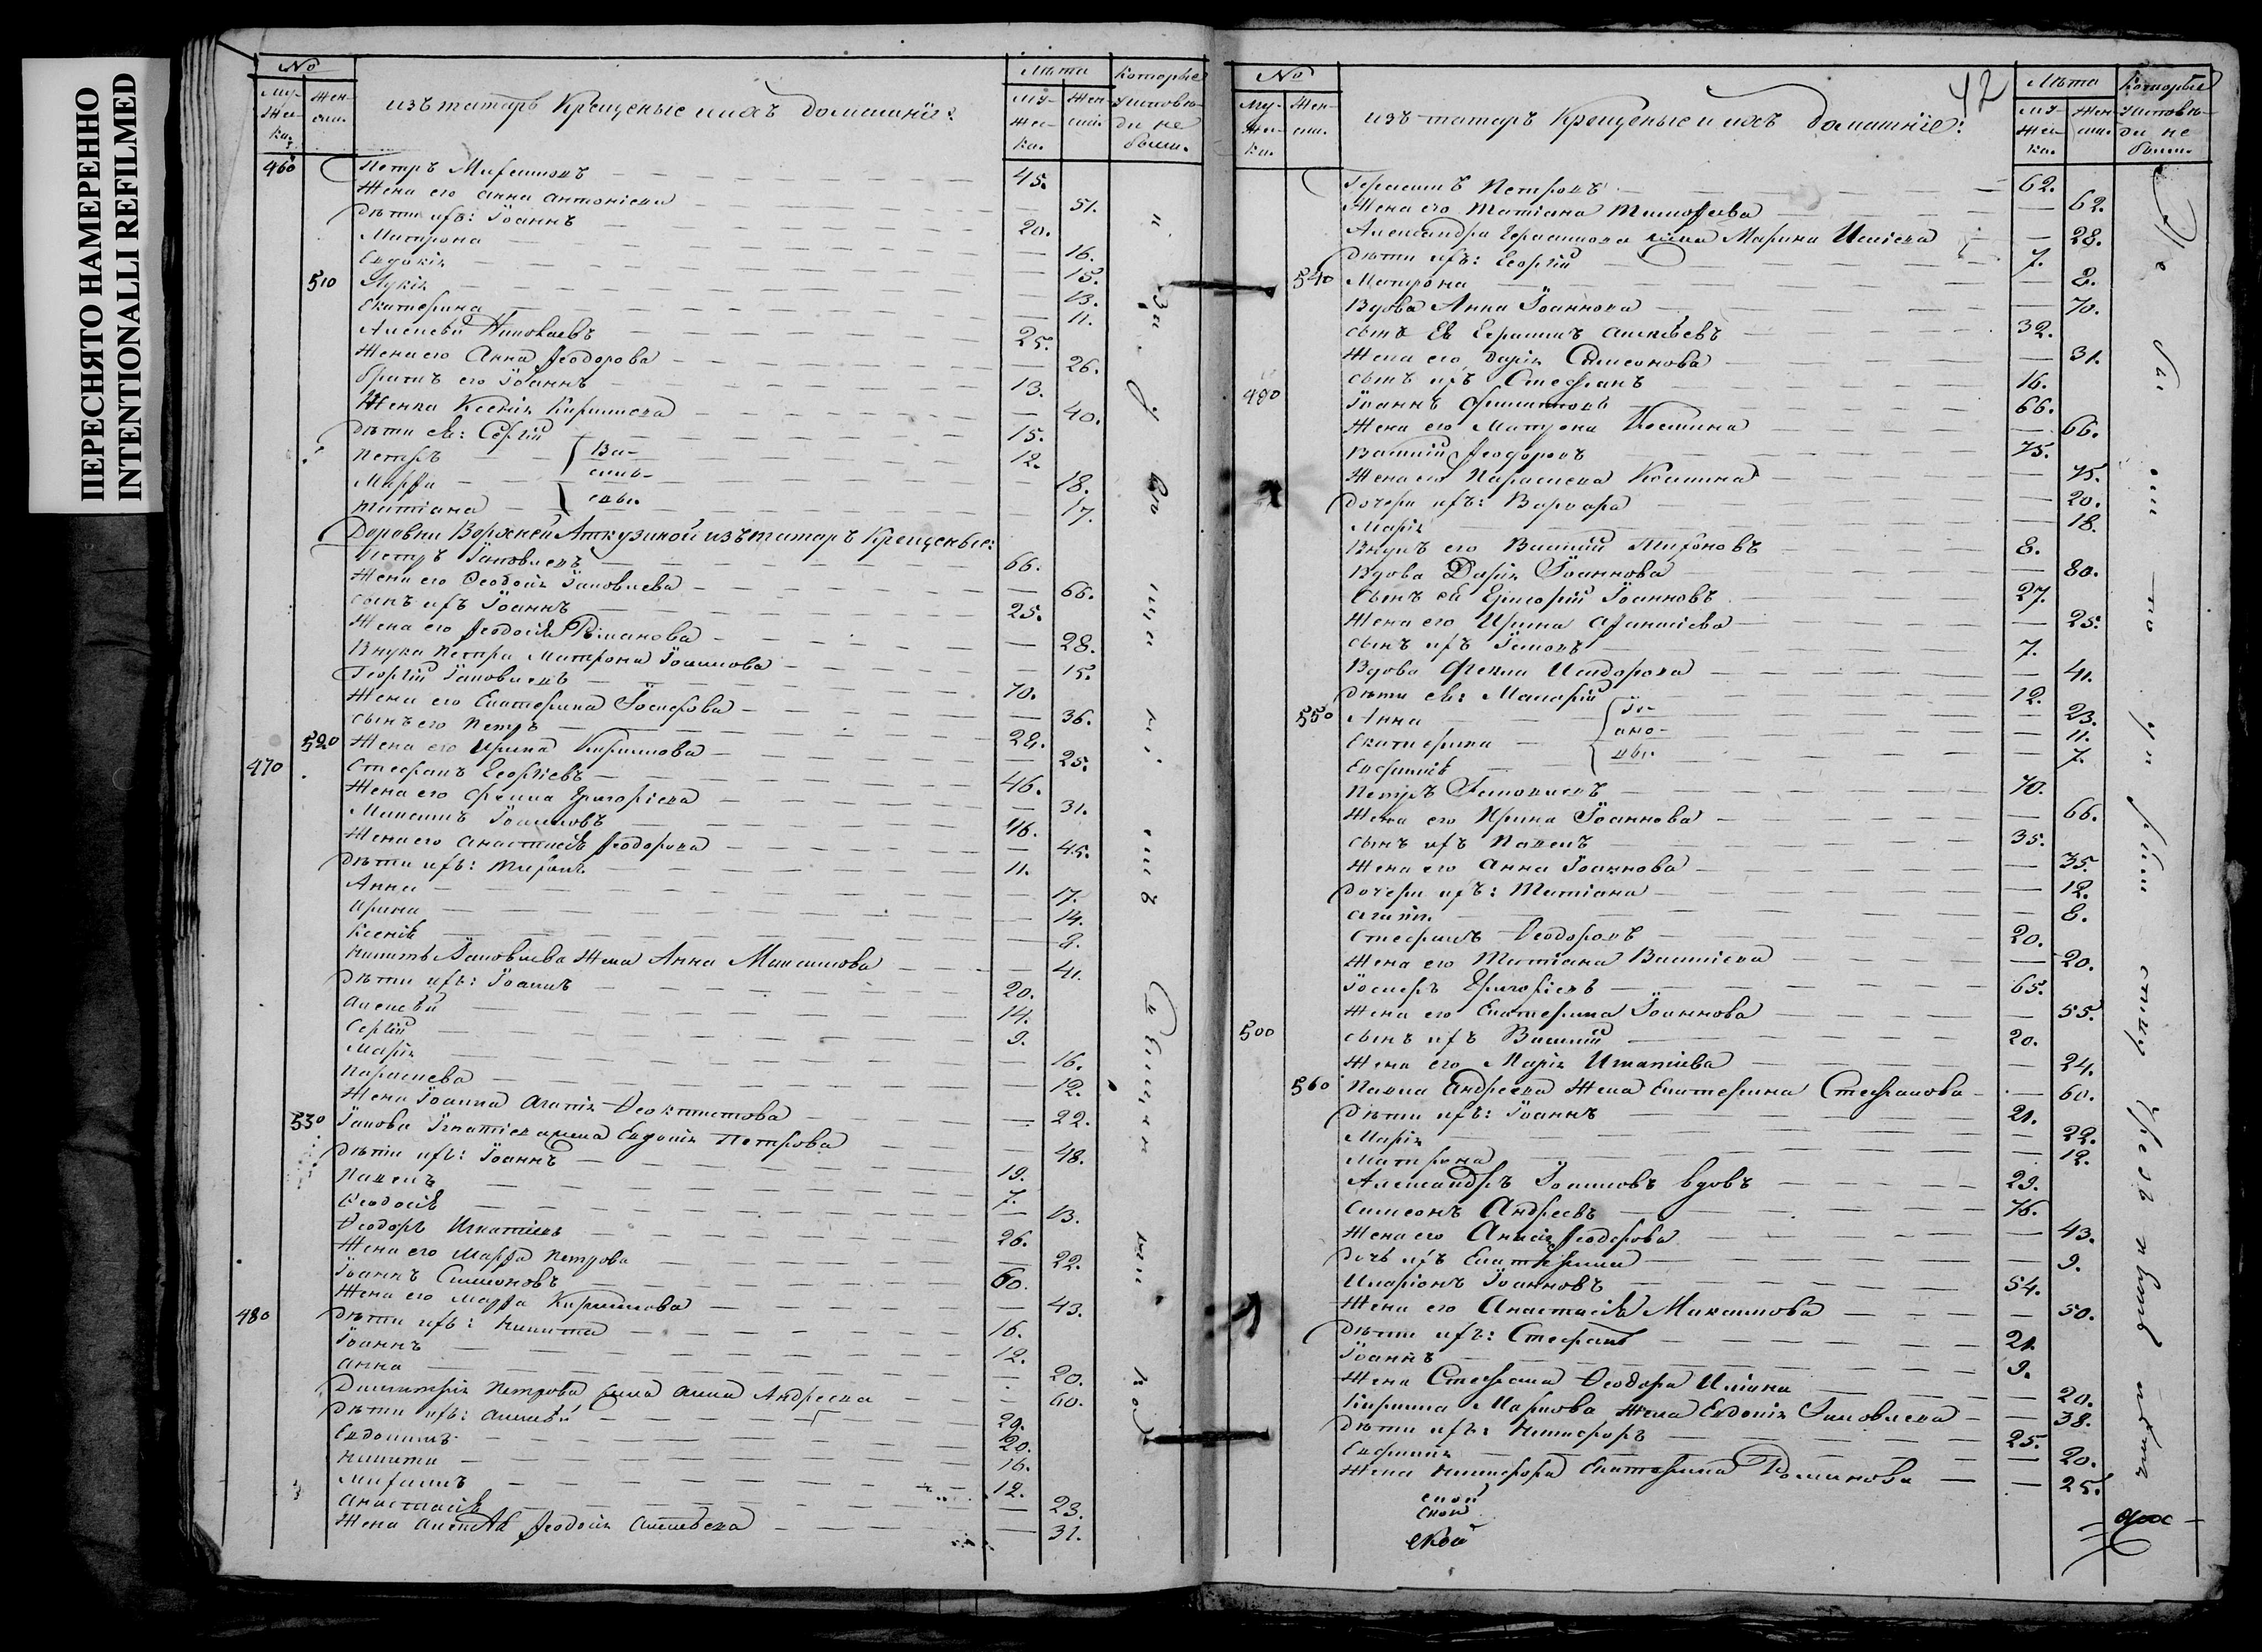 ПЕРЕСНЯТО НАМЕРЕННО
INTENTIONALLI REFILMED
No
Му-
жес-
ка.
Жен-
ски.
изъ татаръ Крещеные и ихъ домашніе:
Лѣта
Му-
жес-
ка.
Жен-
ски.
Которые
исповѣ-
ди не
были.
460 Петръ 45.
Жена его Анна Антоніева 51.
Дѣти ихъ: Іоаннъ 20.
Матрона 16.
Евдокія 15.
510 Лукія 13.
Екатерина 11.
Алексѣй 25.
Жена его Анна Феодорова 26.
братъ его Іоаннъ 13.
Женка Ксенія Кириллова 40.
Дѣти ея: Сергій 15.
Петръ Ва- 12.
Марѳа силь- 18.
Татіана евы. 17.
Деревни Аткузиной изъ татаръ Крещеные:
Петръ Іаковлевъ 66.
Жена его Ѳеодосія Іаковлева 66.
сынъ ихъ Іоаннъ 25.
Жена его Феодосія Романова 28.
Внука Петра Матрона Іоаннова 15.
Георгій Іаковлевъ 70.
Жена его Екатерина Іосифова 36.
сынъ его Петръ 24.
520 Жена его Ирина Кириллова 25.
470 Стефанъ Георгіевъ 46.
Жена его Фекла Григоріева 31.
Максимъ Іоанновъ 46.
Жена его Анастасія Феодорова 45.
Дѣти ихъ: 11.
Анна 17.
Ирина 14.
Ксенія 8.
Никиты Іаковлева Жена Анна Максимова 41.
Дѣти ихъ: Іоаннъ 20.
Алексѣй 14.
Сергій 9.
Марія 16.
Параскева 12.
Жена Іоанна Агапія Ѳеоктистова 22.
530 Іакова Игнатіева жена Евдокія Петрова 48.
Дѣти ихъ: Іоаннъ 19.
Павелъ 7.
Ѳеодосія 13.
Ѳеодоръ Игнатіевъ 26.
Жена его Марѳа Петрова 22.
Іоаннъ Симеоновъ 60.
Жена его Марѳа Кириллова 43.
480 Дѣти ихъ: Никита 16.
Іоаннъ 12.
Анна 20.
Димитрія Петрова жена Анна Андреева 60.
Дѣти ихъ: Алексѣй 29.
Евдокимъ 20.
Никита 16.
Михаилъ 12.
Анастасія 23.
Жена Алексѣя Феодосія Алексѣева 31.
42
No
Му-
жес-
ка.
Жен-
ски.
изъ татаръ Крещеные и ихъ домашніе:
Лѣта
Му-
жес-
ка.
Жен-
ски.
Которые
исповѣ-
ди не
были.
Герасимъ Петровъ 62.
Жена его Татіана Тимофеева 62.
Александра Герасимова жена Марина 28.
Дѣти ихъ: Георгій 7.
540 Матрона 2.
Вдова Анна Іоаннова 70.
сынъ ея Герасимъ Алексѣевъ 32.
Жена его Дарія Симеонова 31.
сынъ ихъ Стефанъ 16.
490 Іоаннъ Филипповъ 66.
Жена его Матрона Космина 66.
Василій Феодоровъ 75.
Жена его Параскева Космина 75.
Дочери ихъ: Варвара 20.
Марія 18.
Внукъ его Василій 8.
Вдова Дарія Іоаннова 80.
Сынъ ея Григорій Іоанновъ 27.
Жена его Ирина Афанасіева 25.
сынъ ихъ Іаковъ 7.
Вдова Фекла Исидорова 41.
Дѣти ея: Макарій 12.
550 Анна Іо- 23.
Екатерина ано- 11.
Евфимія вы. 7.
Петръ Іаковлевъ 70.
Жена его Ирина Іоаннова 66.
сынъ ихъ Павелъ 35.
Жена его Анна Іоаннова 35.
Дочери ихъ: Татіана 12.
Агапія 8.
Стефанъ Ѳеодоровъ 20.
Жена его Татіана Василіева 20.
Іосифъ Григоріевъ 65.
Жена его Екатерина Іоаннова 55.
500 сынъ ихъ Василій 20.
Жена его Марія Игнатіева 24.
560 Павла Андреева Жена Екатерина Стефанова 60.
Дѣти ихъ: Іоаннъ 21.
Марія 22.
Матрона 12.
Александръ Іоанновъ вдовъ 29.
Симеонъ Андреевъ 76.
Жена его Феодорова 43.
Дочь ихъ Екатерина 9.
Иларіонъ Іоанновъ 54.
Жена его Анастасія Максимова 50.
Дѣти ихъ: Стефанъ 21.
Іоаннъ 9.
Жена Стефана Ѳеодора 20.
Кирилла Маркова Жена Евдокія Іаковлева 38.
Дѣти ихъ: Никифоръ 25.
Евфимія 20.
Жена Никифора Екатерина Романова 25.
ской
ской
ской